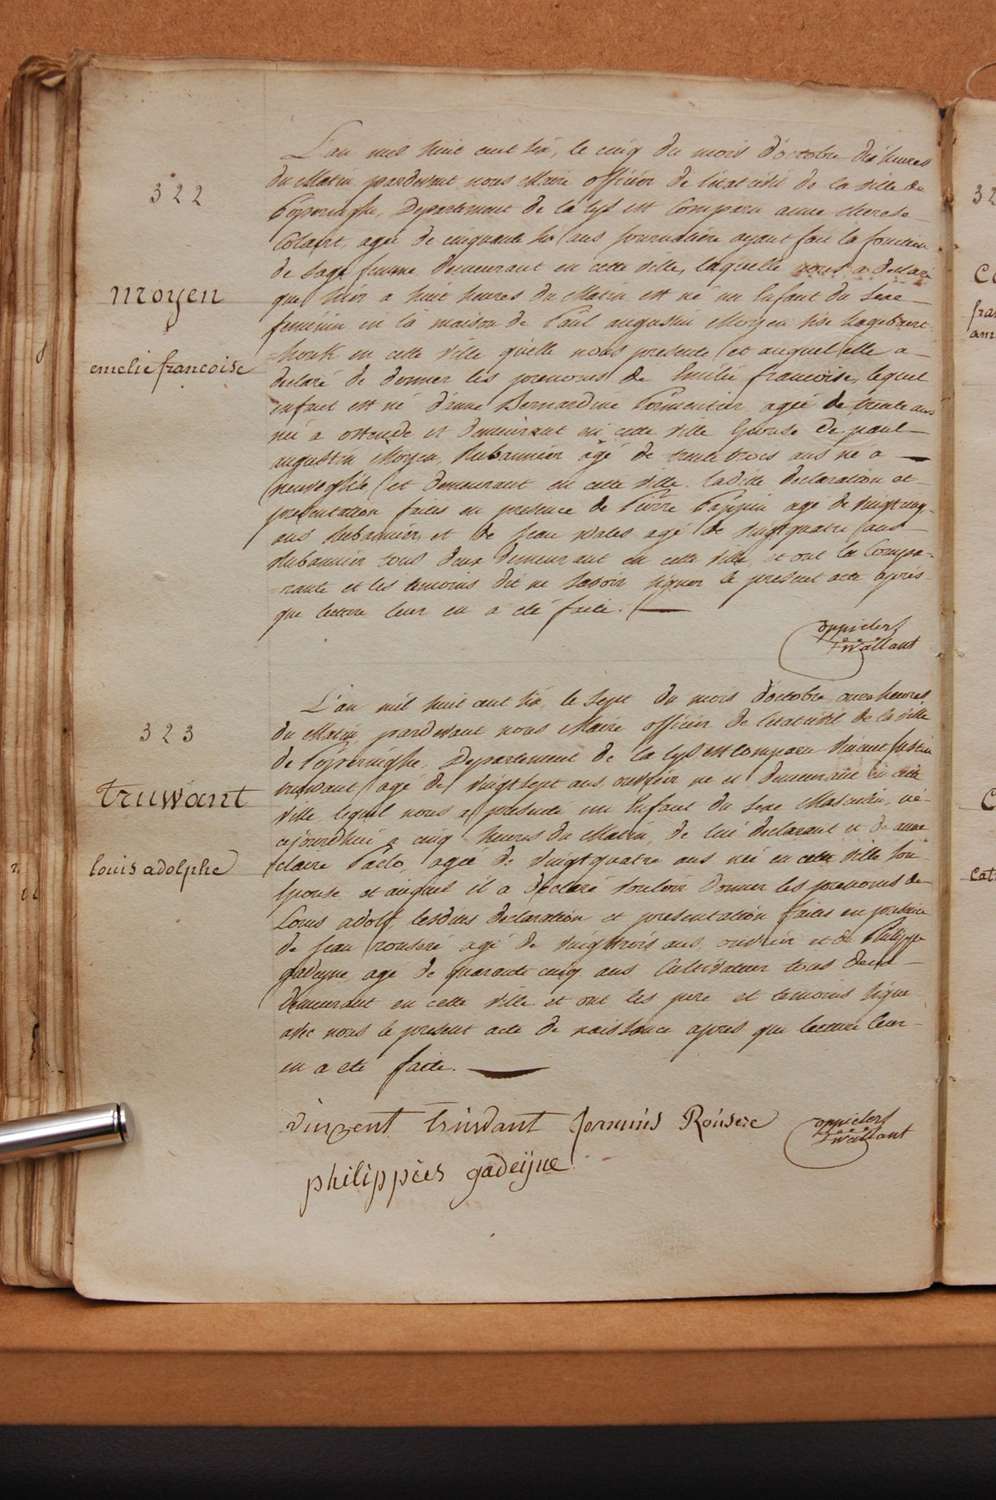 322
moyen
emelie francoise
L'an mil huit cent six, le cinq du mois d'octobre dix heures
du Matin pardevant nous Maire officier de l'etat civil de la ville de
Poperinghe, Departement de la Lys est Comparu anne therese
agée de cinquante six ans journaliere ayant fait la fonction
de Sage femme demeurant en cette ville, laquelle nous a declaré
que hier a huit heures du Matin est né un Enfant du Sexe
feminin en la maison de Paul augustin Moyen sise
en cette ville quelle nous presente et auquel elle a
declaré de donner les prenoms de Emilie francoise, lequel
enfant est né d'anne Bernardine agée de trente ans
née a ostende et demeurant en cette ville Epouse de paul
augustin Moyen, Rubannier agé de trente trois ans né a
et demeurant en cette ville. la dite declaration et
presentation faites en presence de Pierre agé de vingt cinq
ans Rubannier, et de Jean agé de vingt quatre ans
Rubannier tous deux demeurant en cette ville, et ont la Compa-
rante et les temoins dit ne Savoir signer le present acte après
que lecture leur en a été faite.
323
truwant
louis adolphe
L'an mil huit cent six, le sept du mois d'octobre onze heures
du Matin, pardevant nous Maire officier de l'etat civil de la ville
de Poperinghe, Departement de la Lys est Comparu Vincent
truwant agé de vingt sept ans ouvrier né et demeurant en cette
ville lequel nous a présenté un Enfant du Sexe Masculin, né
cejourdhui a cinq heures du Matin, de lui declarant et de anne
claire agée de vingt quatre ans née en cette ville son
Epouse et auquel il a declaré vouloir donner les prenoms de
Louis adolf, lesdites declaration et presentation faites en presence
de Jean rousere agé de vingt trois ans, ouvrier et de Philippe
gadeyne agé de quarante cinq ans Cultivateur tous deux
demeurant en cette ville et ont les pere et temoins signé
avec nous le present acte de naissance apres que lecture leur
en a été faite.
vinzent truwant Joannis Rousere
philippus gadeijne